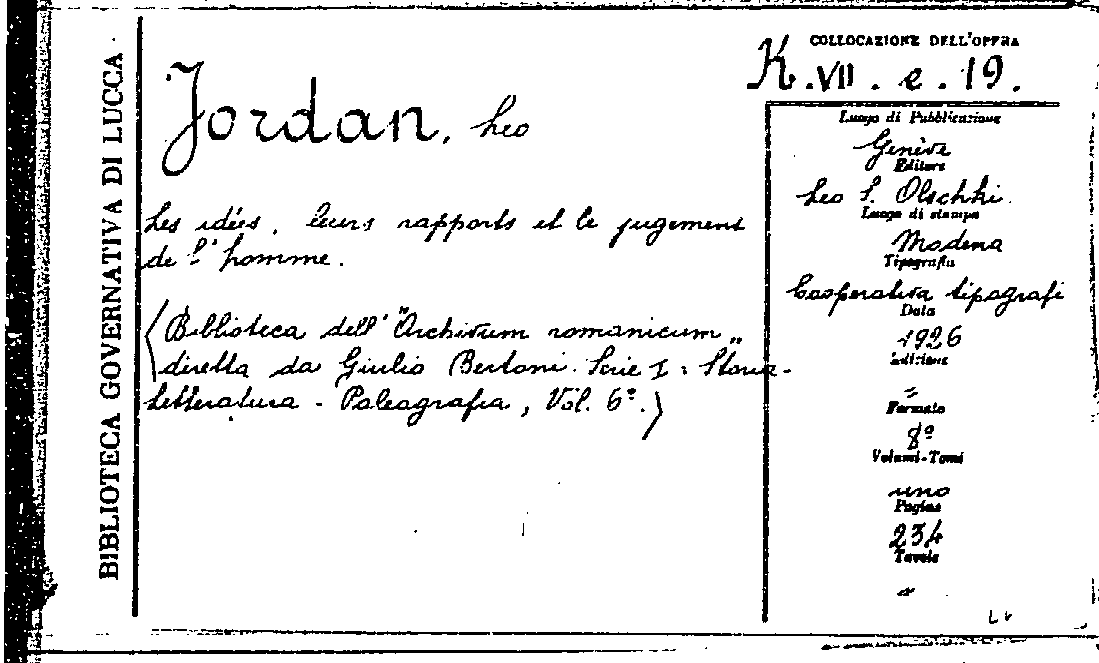 BIBLIOTECA GOVERNATIVA DI LUCCA
Jordan, Leo
Les idées, leurs rapports et le jugement
de l'homme.
(Biblioteca dell' "Archivum romanicum"
diretta da Giulio Bertoni. Serie I: Storia-
Letteratura - Paleografia, Vol. 6º.)
COLLOCAZIONE DELL'OPERA
K. VII. e. 19.
Luogo di Pubblicazione
Genève
Editore
Leo S. Olschki.
Luogo di stampa
Modena
Tipografia
Cooperativa tipografi
Data
1926
Edizione
=
Formato
8º
Volumi-Tomi
uno
Pagine
234
Tavole